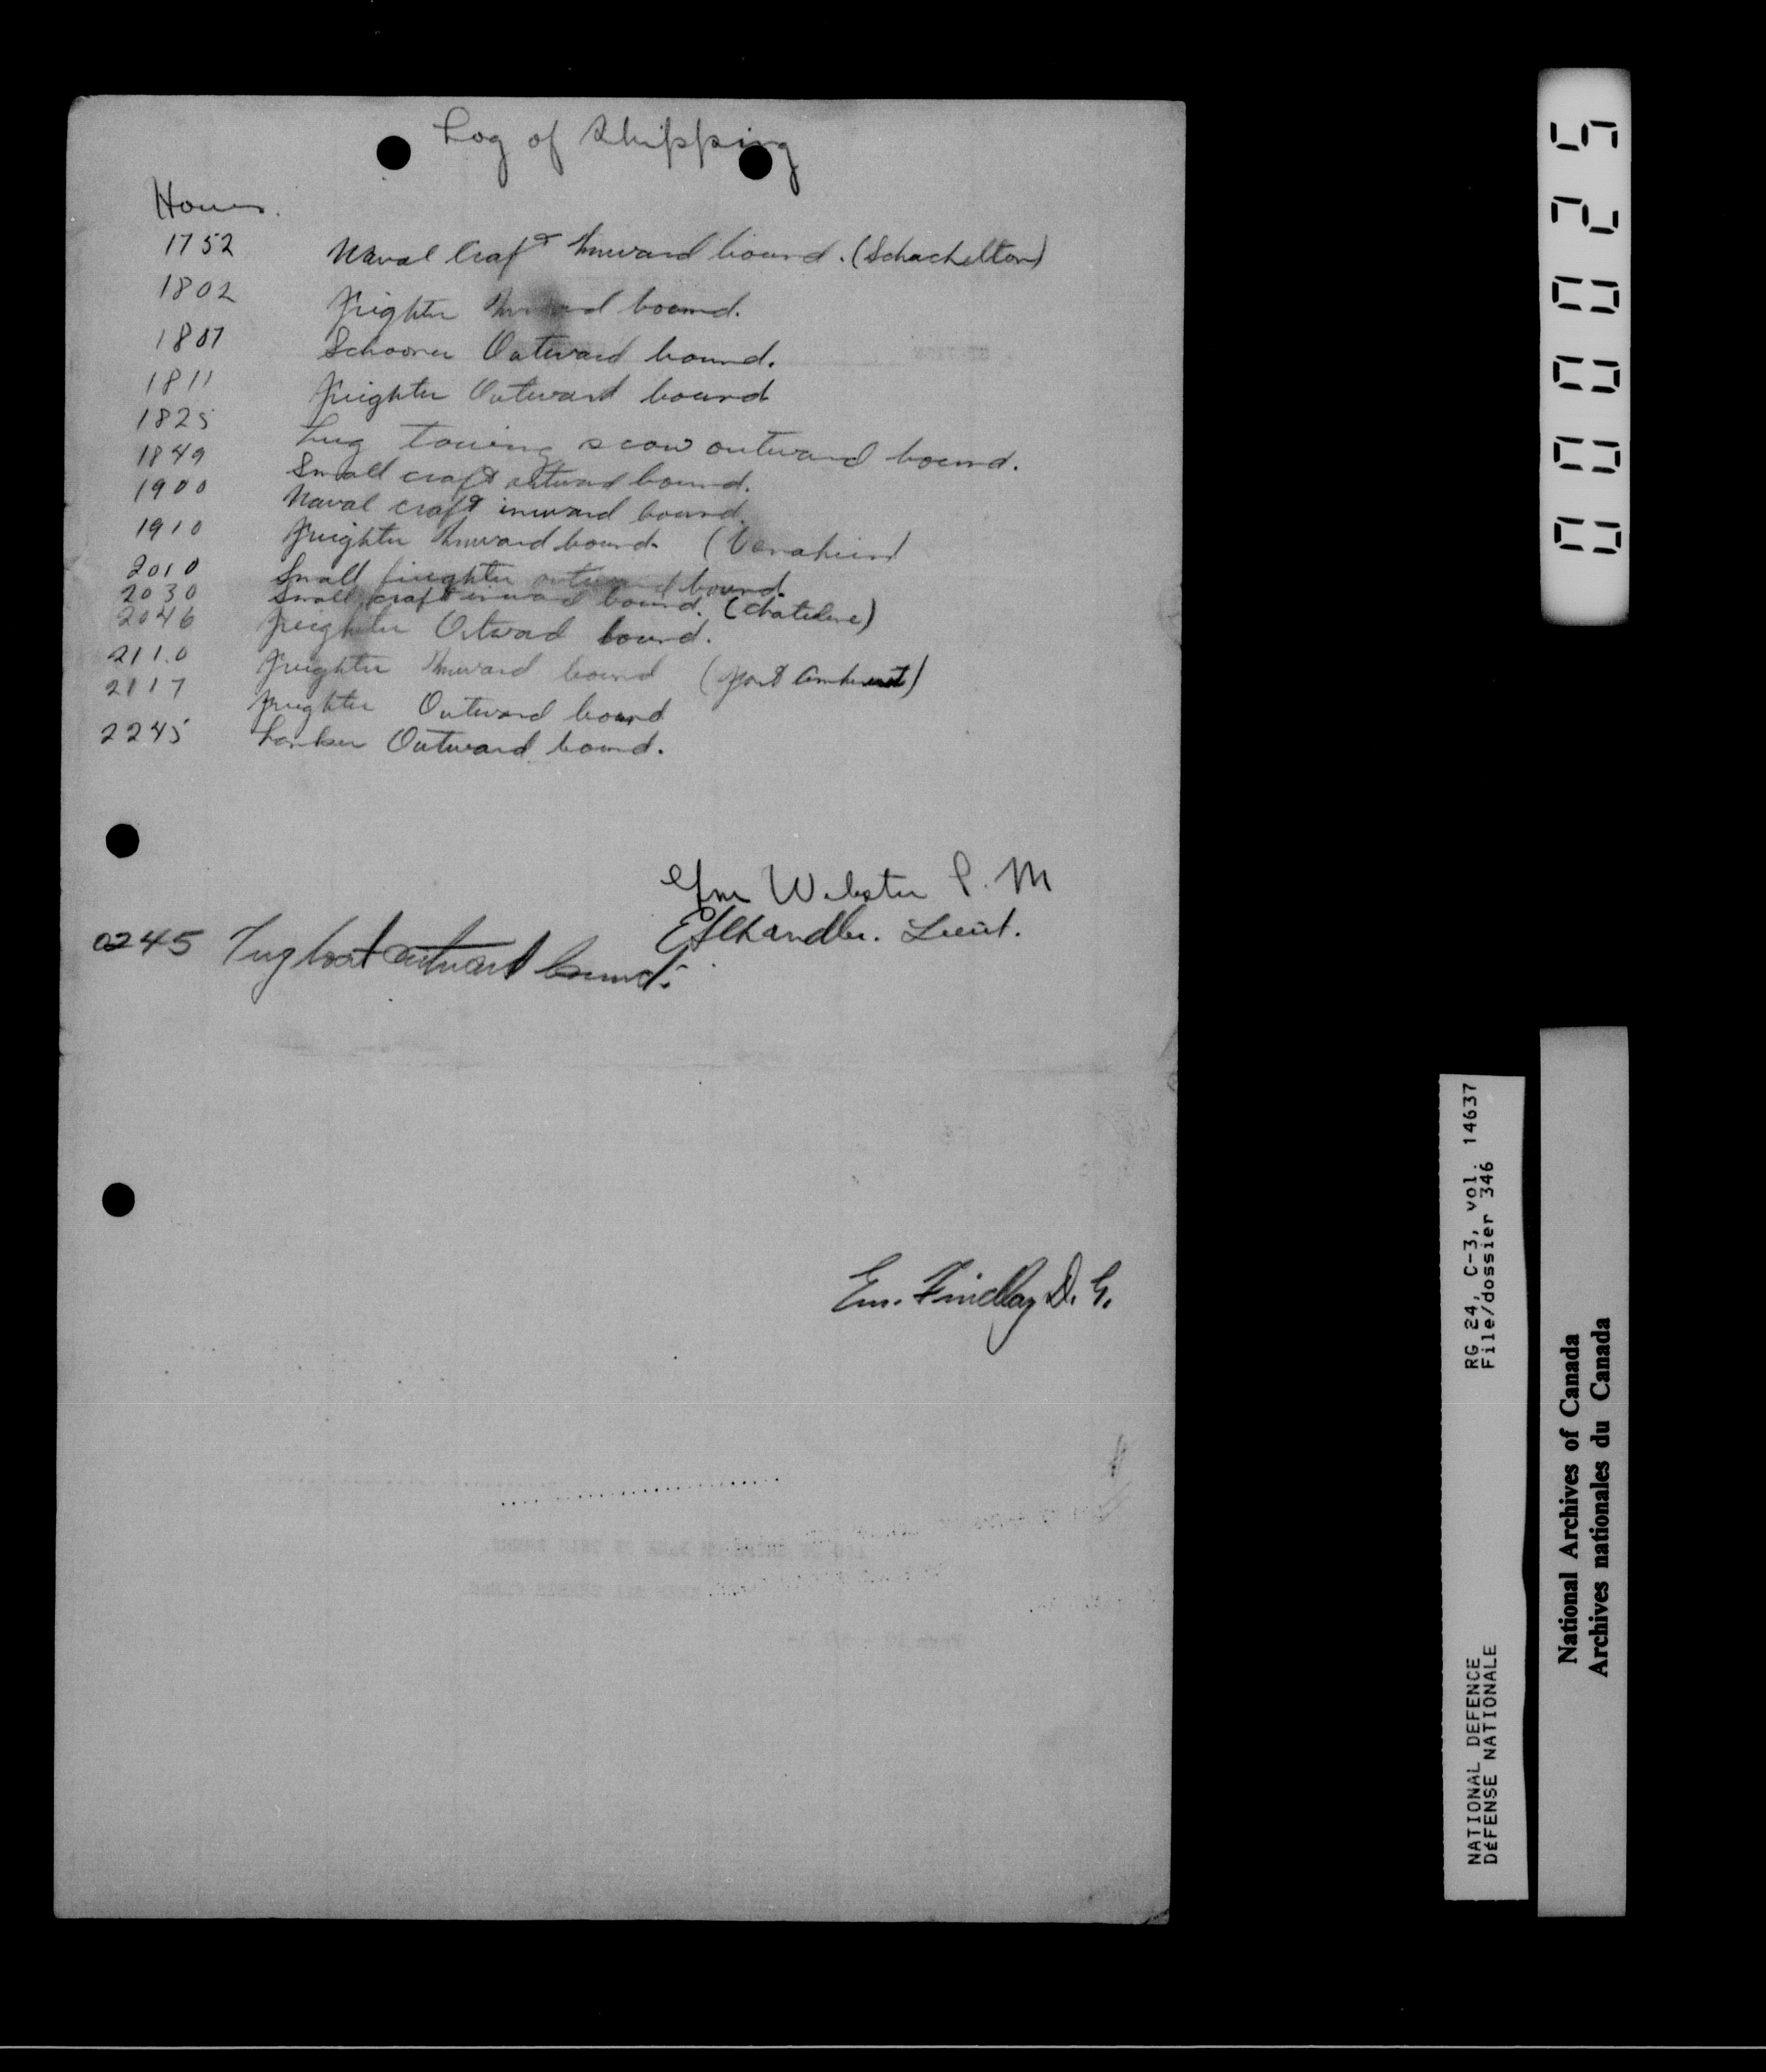 Log of Shipping
Hours.
1752 Naval Craft Inward bound. (Schachelton)
1802 Frighter Inward bound.
1807 Schooner Outward bound.
1811 Freighter Outward bound
1825 Tug towing scow outward bound.
1849 Small craft outward bound.
1900 Naval craft inward bound.
1910 Freighter Inward bound.
2010 Small freighter outward bound.
2030 Small craft inward bound. (Chatelene)
2046 Freighter Outward bound.
2110 Freighter Inward bound (Fort Amherst)
2117 Freighter Outward bound
2245 Tanker Outward bound.
Webster P. M
E Chandler. Lieut.
0245 Tug boat outward bound.
Em. Findlay D. G.
000025
RG 24, C-3, vol. 14637
File/dossier 346
NATIONAL DEFENCE
DÉFENSE NATIONALE
National Archives of Canada
Archives nationales du Canada